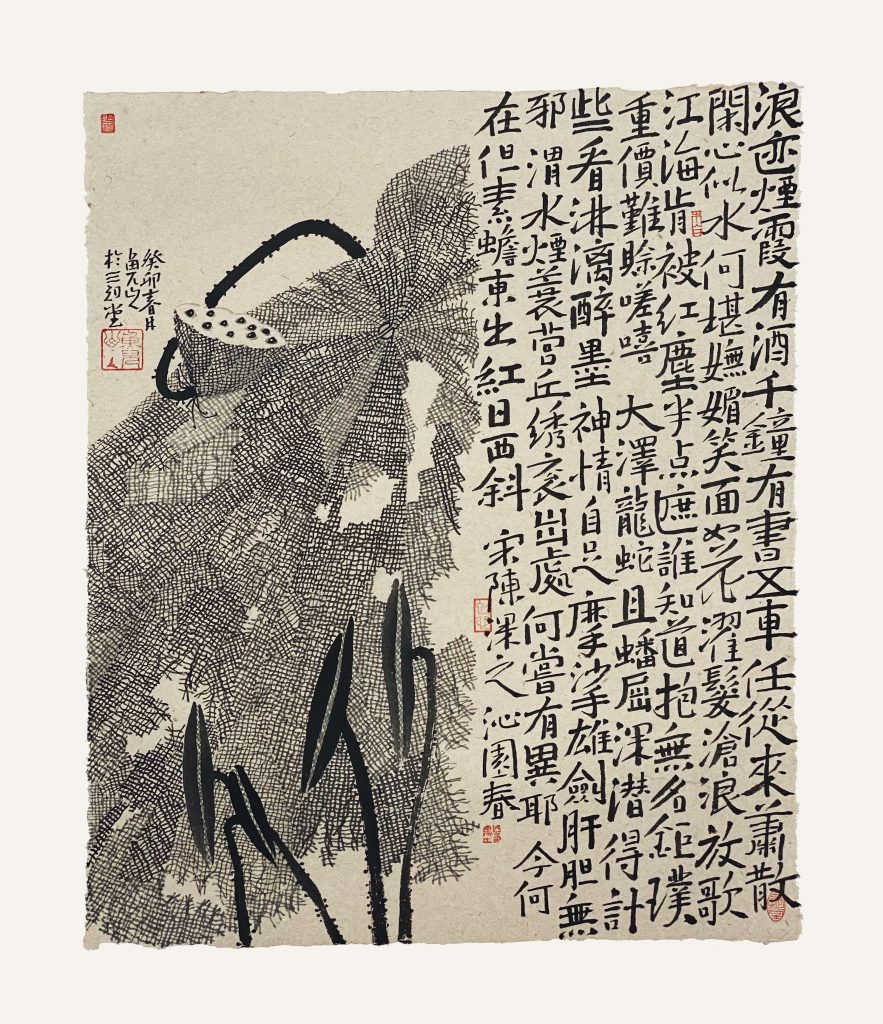 浪迹煙霞有酒千鐘有書五車任從來蕭散
閑心似水何堪嫵媚笑面如花濯髮滄浪放歌
江海肯被紅塵半点遮誰知道抱無名鉅璞
重價難賒嗟嘻大澤龍蛇且蟠屈深潜得計
些看淋漓醉墨神情自足摩挲雄劍肝胆無
邪渭水煙蓑营丘绣衮出處何嘗有異耶今何
在但素蟾東出紅日西斜宋陳深之沁園春
癸卯春月
於三初堂